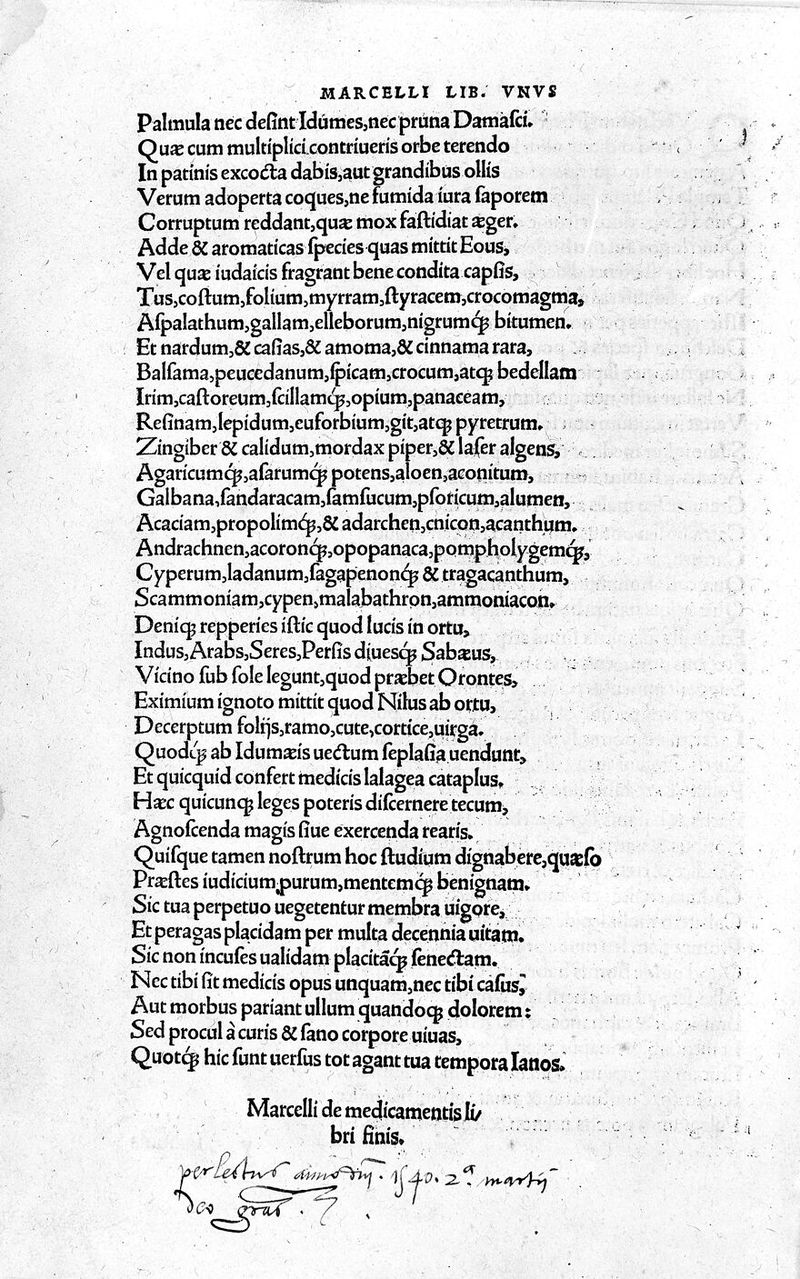 MARCELLI LIB. VNVS
Palmula nec deſint Idúmes,nec pruna Damaſci.
Quæ cum multiplici contriueris orbe terendo
In patinis excocta dabis,aut grandibus ollis
Verum adoperta coques,ne fumida iura ſaporem
Corruptum reddant,quæ mox faſtidiat æger.
Adde & aromaticas ſpecies quas mittit Eous,
Vel quæ iudaicis fragrant bene condita capſis,
Tus,coſtum,folium,myrram,ſtyracem,crocomagma,
Aſpalathum,gallam,elleborum,nigrumq́; bitumen.
Et nardum,& caſias,& amoma,& cinnama rara,
Balſama,peucedanum,ſpicam,crocum,atq; bedellam
Irim,caſtoreum,ſcillamq́;,opium,panaceam,
Reſinam,lepidum,euforbium,git,atq; pyretrum.
Zingiber & calidum,mordax piper,& laſer algens,
Agaricumq́;,aſarumq́; potens,aloen,aconitum,
Galbana,ſandaracam,ſamſucum,pſoricum,alumen,
Acaciam,propolimq́;,& adarchen,cnicon,acanthum.
Andrachnen,acoronq́;,opopanaca,pompholygemq́;,
Cyperum,ladanum,ſagapenonq́; & tragacanthum,
Scammoniam,cypen,malabathron,ammoniacon.
Deniq; repperies iſtic quod lucis in ortu,
Indus,Arabs,Seres,Perſis diuesq́; Sabæus,
Vicino ſub ſole legunt,quod præbet Orontes,
Eximium ignoto mittit quod Nilus ab ortu,
Decerptum folijs,ramo,cute,cortice,uirga.
Quodq́; ab Idumæis uectum ſeplaſia uendunt,
Et quicquid confert medicis lalagea cataplus.
Hæc quicunq; leges poteris diſcernere tecum,
Agnoſcenda magis ſiue exercenda rearis.
Quiſque tamen noſtrum hoc ſtudium dignabere,quæſo
Præſtes iudicium purum,mentemq́; benignam.
Sic tua perpetuo uegetentur membra uigore,
Et peragas placidam per multa decennia uitam.
Sic non incuſes ualidam placitãq́; ſenectam.
Nec tibi ſit medicis opus unquam,nec tibi caſus,
Aut morbus pariant ullum quandoq; dolorem:
Sed procul à curis & ſano corpore uiuas,
Quotq́; hic ſunt uerſus tot agant tua tempora Ianos.
Marcelli de medicamentis li/
bri finis.
perlectus anno dnj. 1540. 2ª. martij
deo gras.